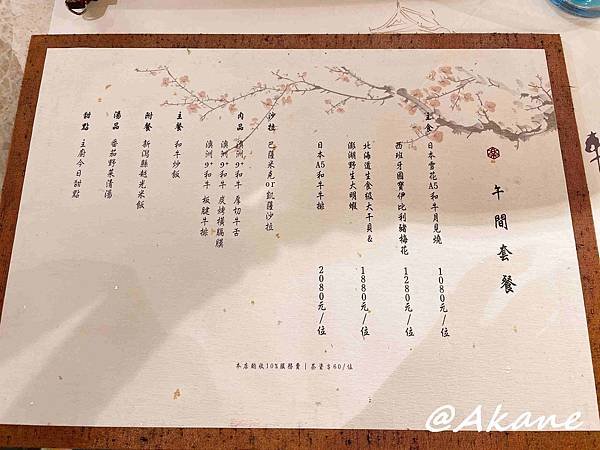 午間套餐
主食 日本雪花A5和牛月見燒 1080元/位
西班牙國寶伊比利豬梅花 1280元/位
北海道生食級大干貝&
澎湖野生大明蝦 1880元/位
日本A5和牛牛排 2080元/位
沙拉 巴薩米克or凱薩沙拉
肉品 澳洲9+和牛 厚切牛舌
澳洲9+和牛 炭烤橫膈膜
澳洲9+和牛 板腱牛排
主餐 和牛炒飯
附餐 新潟縣越光米飯
湯品 番茄野菜清湯
甜點 主廚今日甜點
本店酌收10%服務費｜茶資$60/位
@Akane